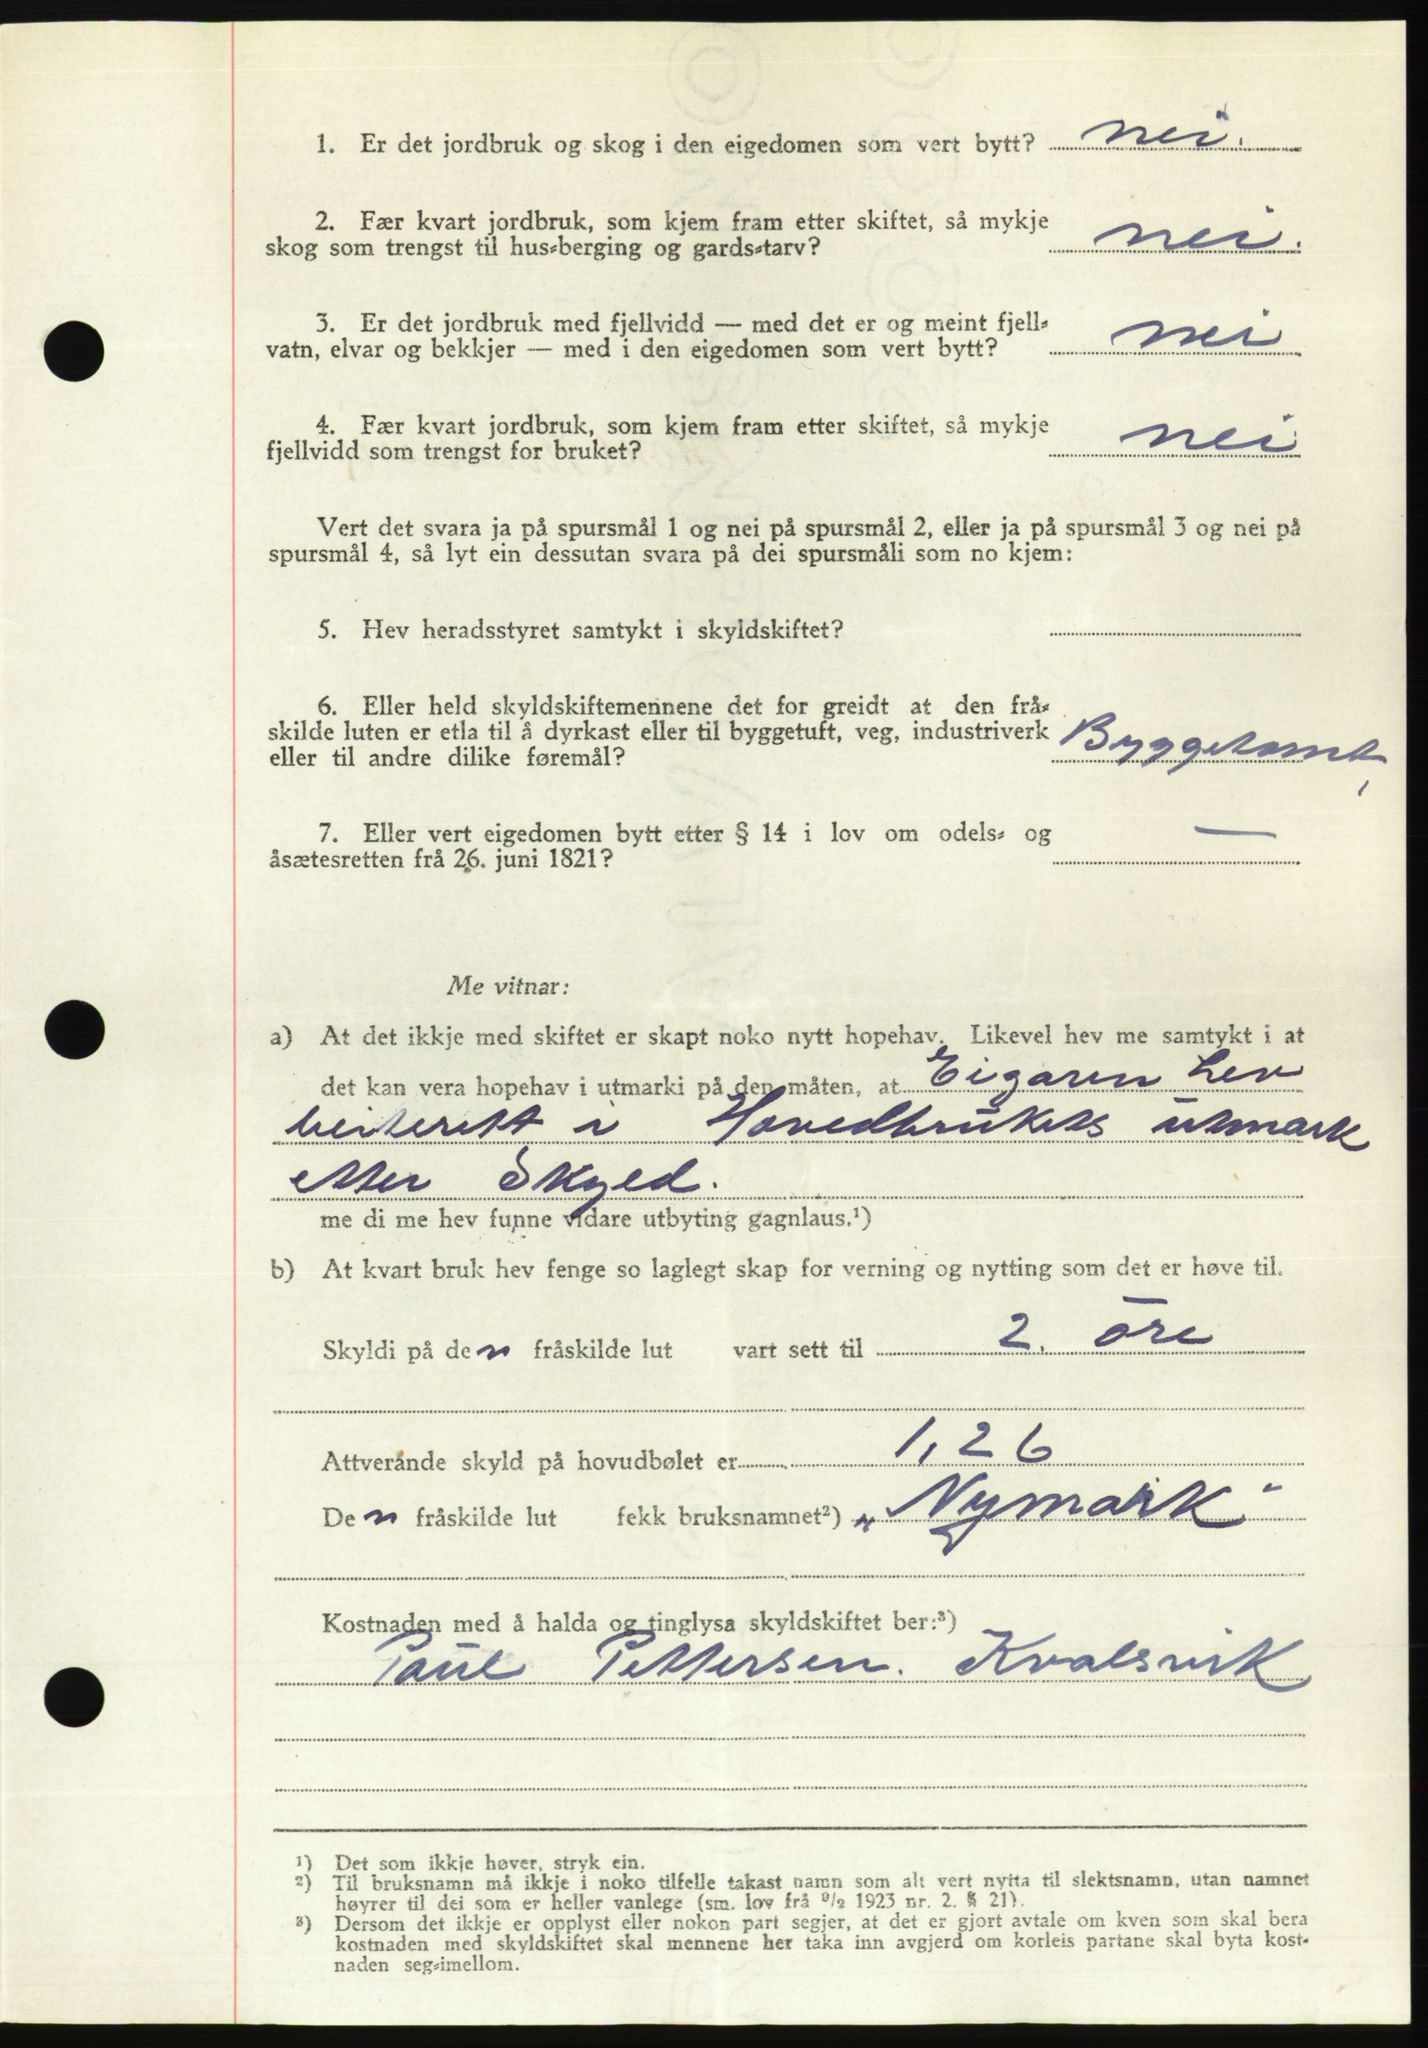 1. Er det jordbruk og skog i den eigedomen som vert bytt? nei.
2. Fær kvart jordbruk, som kjem fram etter skiftet, så mykje
skog som trengst til hus-berging og gards-tarv? nei.
3. Er det jordbruk med fjellvidd — med det er og meint fjell-
vatn, elvar og bekkjer — med i den eigedomen som vert bytt? nei
4. Fær kvart jordbruk, som kjem fram etter skiftet, så mykje
fjellvidd som trengst for bruket? nei
Vert det svara ja på spursmål 1 og nei på spursmål 2, eller ja på spursmål 3 og nei på
spursmål 4, så lyt ein dessutan svara på dei spursmåli som no kjem:
5. Hev heradsstyret samtykt i skyldskiftet?
6. Eller held skyldskiftemennene det for greidt at den frå-
skilde luten er etla til å dyrkast eller til byggetuft, veg, industriverk Byggetomt,
eller til andre dilike føremål?
7. Eller vert eigedomen bytt etter § 14 i lov om odels- og —
åsætesretten frå 26. juni 1821?
Me vitnar:
a) At det ikkje med skiftet er skapt noko nytt hopehav. Likevel hev me samtykt i at
det kan vera hopehav i utmarki på den måten, at Eigaren hev
beiterett i Hovedbrukets utmark
etter Skyld.
me di me hev funne vidare utbyting gagnlaus.¹)
b) At kvart bruk hev fenge so laglegt skap for verning og nytting som det er høve til.
Skyldi på den fråskilde lut vart sett til 2. öre
Attverande skyld på hovudbølet er 1,26
Den fråskilde lut fekk bruksnamnet²) „Nymark"
Kostnaden med å halda og tinglysa skyldskiftet ber:³)
Paul Pettersen. Kvalsvik
¹) Det som ikkje høver, stryk ein.
²) Til bruksnamn må ikkje i noko tilfelle takast namn som alt vert nytta til slektsnamn, utan namnet
høyrer til dei som er heller vanlege (sm. lov frå ⁹/₂ 1923 nr. 2. § 21).
³) Dersom det ikkje er opplyst eller nokon part segjer, at det er gjort avtale om kven som skal bera
kostnaden med skyldskiftet skal mennene her taka inn avgjerd om korleis partane skal byta kost-
naden seg-imellom.